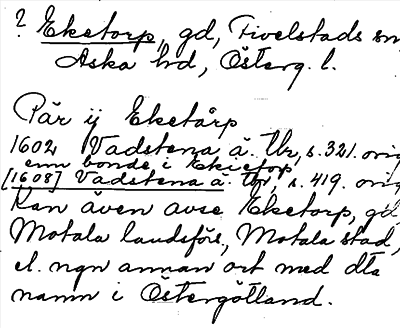 ? Eketorp, gd, Fivelstads sn
Aska hd, Österg. l.
Pär ij Eketårp
1602 Vadstena ä. tbr, s. 321. orig
enn bonde i Ekietop
[1608] Vadstena ä. tbr, s. 419. orig
Kan även avse Eketorp, gd,
Motala landsförs, Motala stad,
el. ngn annan ort med dta
namn i Östergötland.